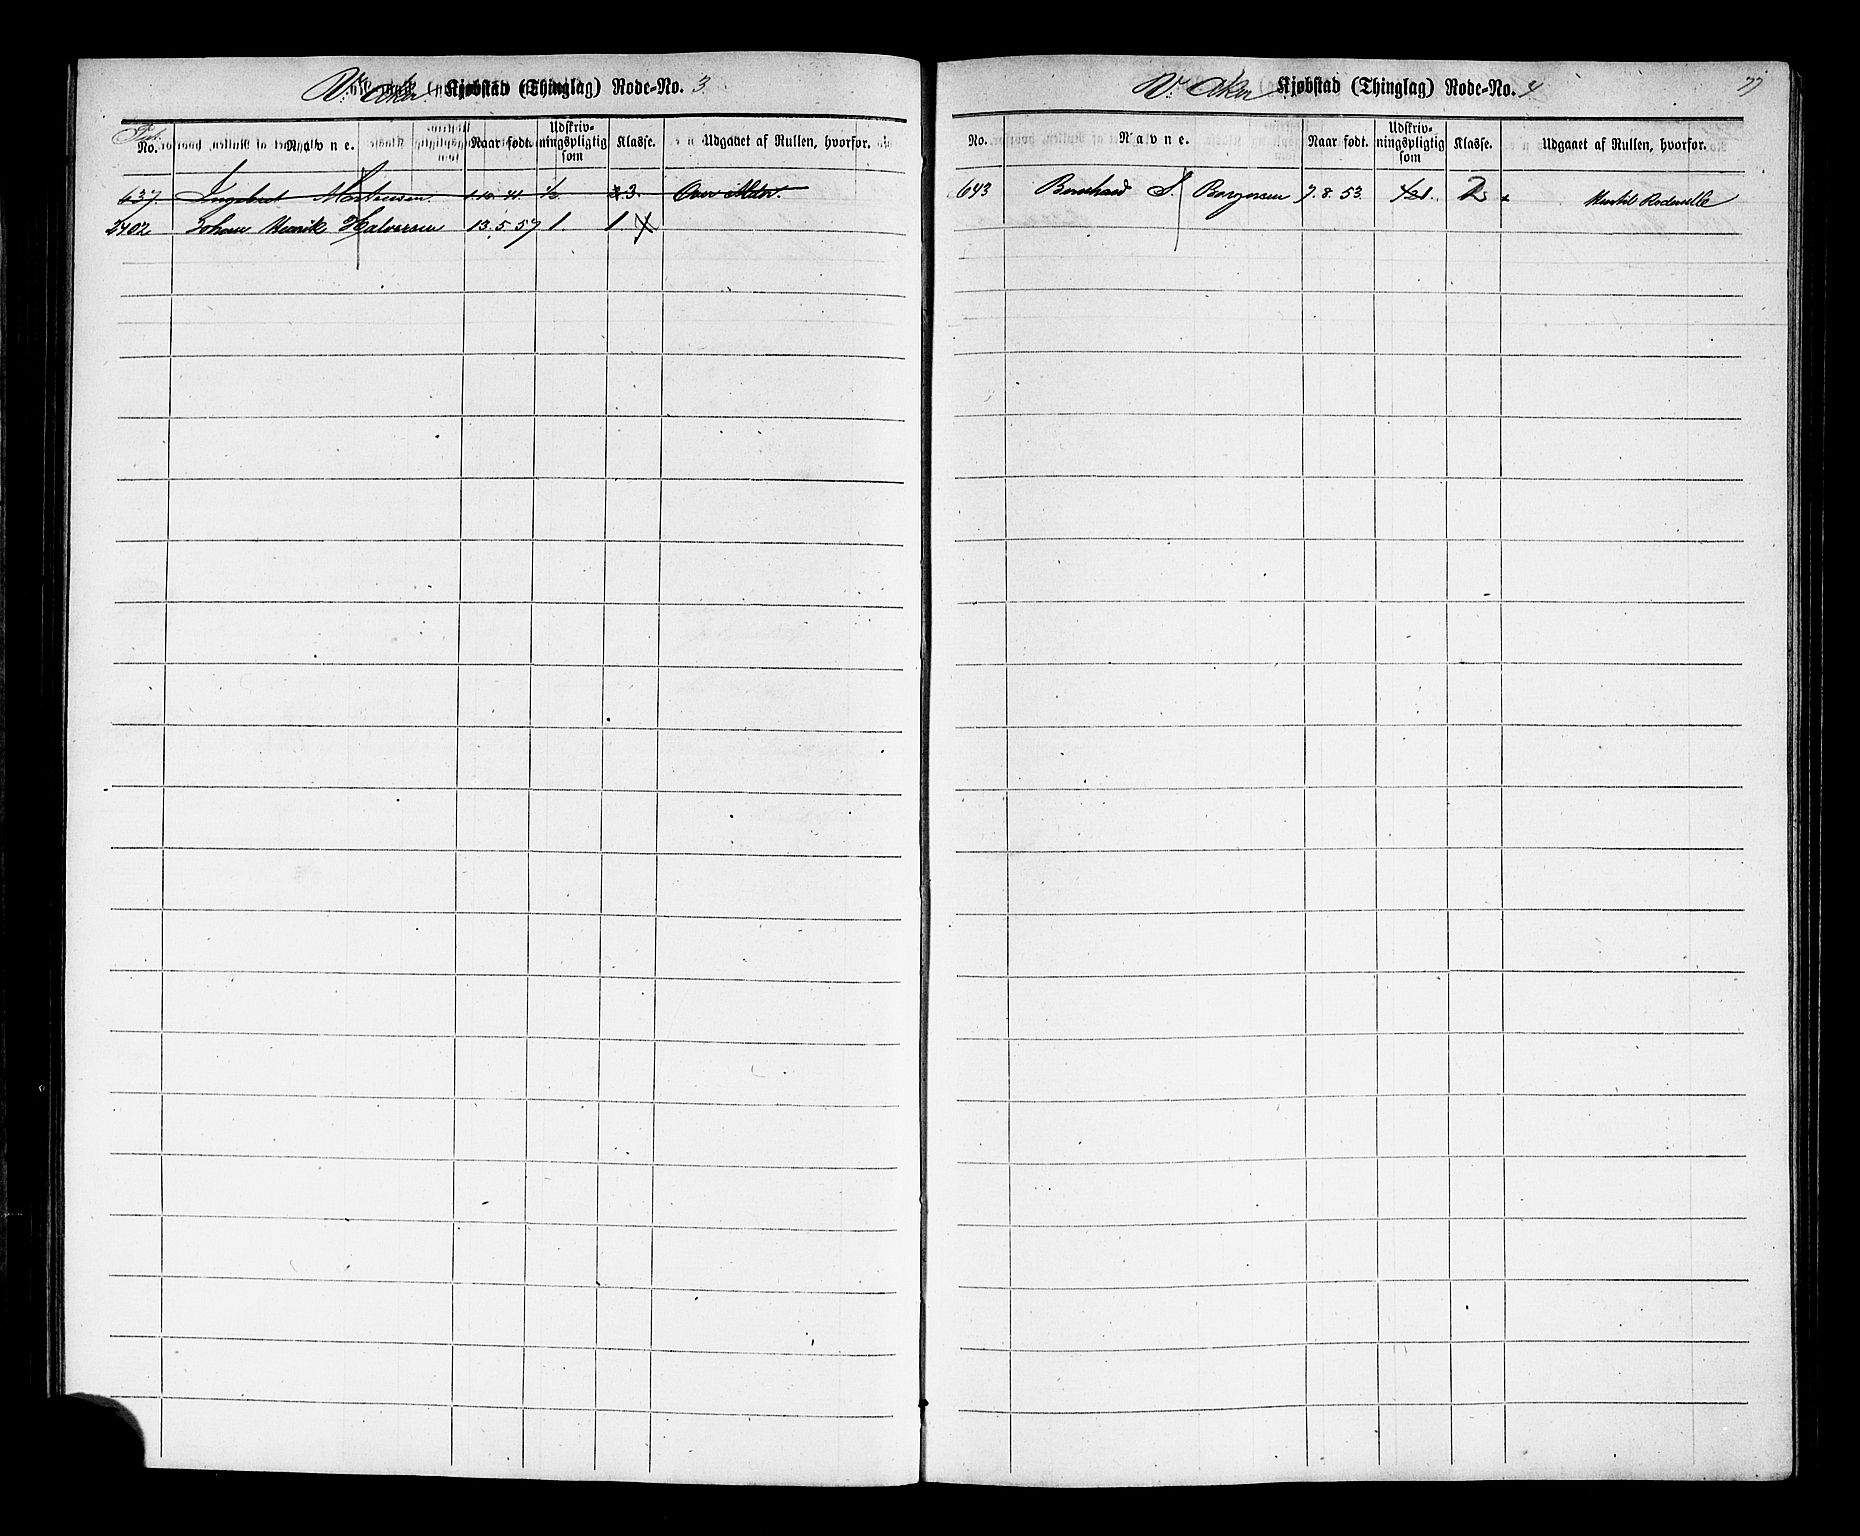 V. Aker Kjøbstad (Thinglag) Rode-No. 3
No. Navne. Naar født. Udskriv-ningspligtig som Klasse. Udgaaet af Rullen, hvorfor.
637. Ingebret Mathiesen 1. 12. 41. 1/2 3. Over Alder.
2402 Johan Henrik Halvorsen 13. 5. 57 1. 1
V. Aker Kjøbstad (Thinglag) Rode-No. 4
77
No. Navne. Naar født. Udskriv-ningspligtig som Klasse. Udgaaet af Rullen, hvorfor.
643 Bernhard S. Borgersen 7. 8. 53. 2